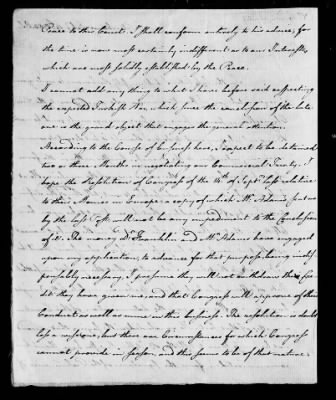 Peace to this Court. I shall conform entirely to his advice, for
the time is now most certainly indifferent as to our Interests,
which are most solidly established by the Peace.
I cannot add any thing to what I have before said respecting
the expected Turkish War, which since the conclusion of the late
one is the grand object that engages the general attention.
According to the Course of business here, I expect to be detained
two or three Months in negotiating our Commercial Treaty. I
hope the Resolution of Congress of the 14th of Sept. last relative
to their Monies in Europe a copy of which Mr. Adams sent me
by the last Post will not be any impediment to the Conclusion
of it. The money Dr. Franklin and Mr. Adams have engaged
upon my application, to advance for that purpose being indis-
pensably necessary, I presume they will not withdraw the Cre-
dit they have given me, and that Congress will approve of their
Conduct as well as mine in this business. The resolution is doubt-
less a wise one, but there are Circumstances for which Congress
cannot provide in season, and this seems to be of that nature.